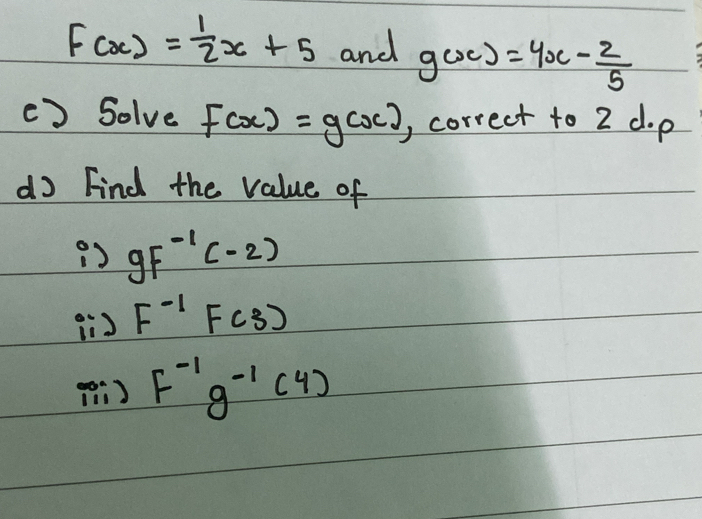 F(x) = 1/2 x + 5 and g(x) = 4x - 2/5
c) Solve F(x) = g(x), correct to 2 d.p
d) Find the value of
i) gF⁻¹(-2)
ii) F⁻¹ F(3)
iii) F⁻¹ g⁻¹ (4)